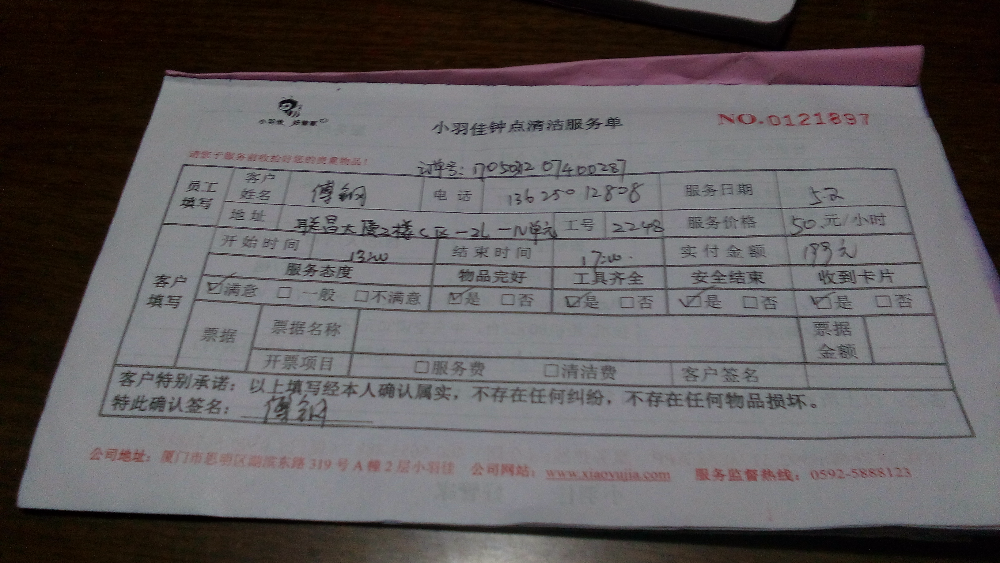 小羽佳 好管家
小羽佳钟点清洁服务单
NO.0121897
请您于服务前收捡好您的贵重物品!
订单号:
员工填写
客户姓名 傅钢 电话 13625012808 服务日期
地址 联昌大厦2楼C区-2L-N单元 工号 2248 服务价格 50元/小时
客户填写
开始时间 13:00 结束时间 17:00 实付金额 199元
服务态度 物品完好 工具齐全 安全结束 收到卡片
☑满意 □一般 □不满意 ☑是 □否 ☑是 □否 ☑是 □否 ☑是 □否
票据 票据名称 票据金额
开票项目 □服务费 □清洁费 客户签名
客户特别承诺:以上填写经本人确认属实,不存在任何纠纷,不存在任何物品损坏。
特此确认签名:傅钢
公司地址:厦门市思明区湖滨东路319号A幢2层小羽佳 公司网站:www.xiaoyujia.com 服务监督热线:0592-5888123